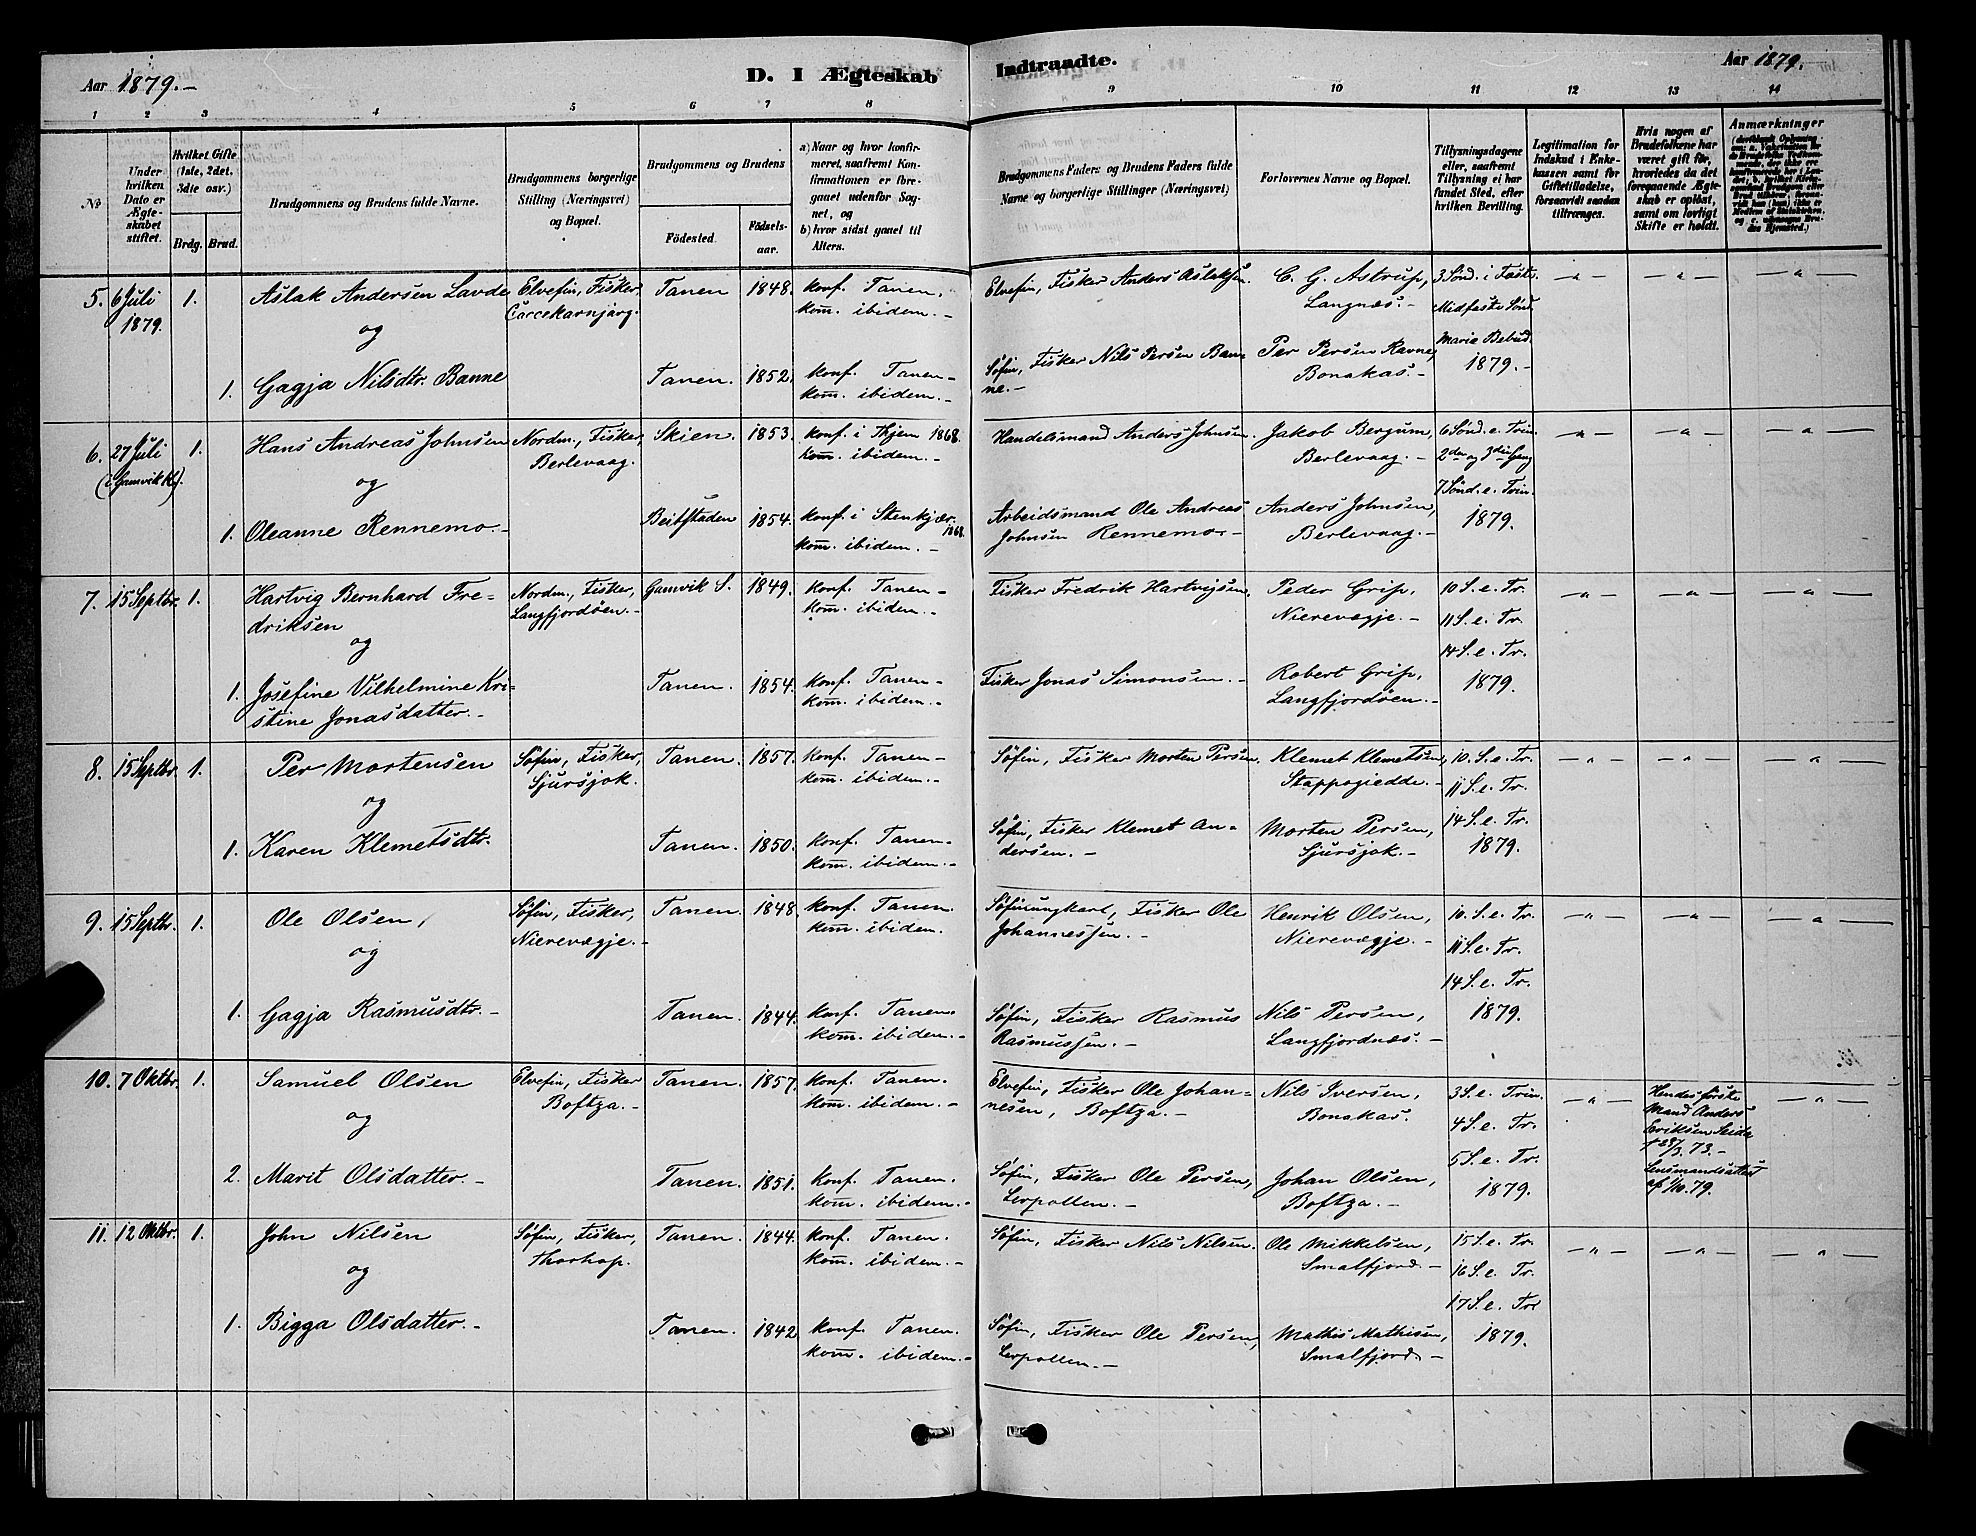 Aar 1879.-
D. I Ægteskab
Indtraadte.
Aar 1879.
1 2 3 4 5 6 7 8 9 10 11 12 13 14
No
Under hvilken Dato er Ægteskabet stiftet.
Hvilket Gifte (1ste, 2det, 3die osv.)
Brdg. Brud.
Brudgommens og Brudens fulde Navne.
Brudgommens borgerlige Stilling (Næringsvei) og Bopæl.
Brudgommens og Brudens
Födested. Födselsaar.
a) Naar og hvor konfirmeret, saafremt Konfirmationen er foregaaet udenfor Sognet, og
b) hvor sidst gaaet til Alters.
Brudgommens Faders og Brudens Faders fulde Navne og borgerlige Stillinger (Næringsvei)
Forlovernes Navne og Bopæl.
Tillysningsdagene eller, saafremt Tillysning ei har fundet Sted, efter hvilken Bevilling.
Legitimation for Indskud i Enkekassen samt for Giftetilladelse, forsaavidt saadan tiltrænges.
Hvis nogen af Brudefolkene har været gift för, hvorledes da det foregaaende Ægteskab er oplöst, samt om lovligt Skifte er holdt.
Anmærkninger
5. 6 Juli 1. Aslak Andersen Lavde Elvefin, Fisker, Tanen 1848. konf. Tanen. Elvefin, Fisker Anders Aslaksen. C. G. Astrup, 3 Sönd. i Faste. - " - - " - - " -
1879. Carcekarnjarg. kom. ibidem.- Langnæs.- Midfaste Sönd.
og Mariæ Bebud.
1. Gagja Nilsdtr. Banne Tanen. 1852. konf. Tanen- Söfin, Fisker Nils Persen Ban- Per Persen Ravne, 1879.-
kom. ibidem.- ne.- Bonakas.-
6. 27 Juli 1. Hans Andreas Johnsen Nordm., Fisker, Skien. 1853. konf. i Thjem 1868. Handelsmand Anders Johnsen. Jakob Bergum, 6 Sönd. e. Trin. - " - - " - - " -
(i Gamvik K.). Berlevaag. kom. ibidem.- Berlevaag.- 2den og 3die Gang
og 7 Sönd. e. Trin.
1. Oleanne Rennemo.- Beitstaden 1854. konf. i Stenkjær. 1868. Arbeidsmand Ole Andreas Anders Johnsen, 1879.
kom. ibidem.- Johnsen Rennemo.- Berlevaag.-
7. 15 Septbr. 1. Hartvig Bernhard Fre- Nordm., Fisker, Gamvik S. 1849. konf. Tanen- Fisker Fredrik Hartvigsen. Peder Grip, 10 S. e. Tr. - " - - " - - " -
driksen Langfjordöen.- kom. ibidem.- Nierevægje.- 11 S. e. Tr.
og 14 S. e. Tr.
1. Josefine Vilhelmine Kri- Tanen. 1854. konf. Tanen- Fisker Jonas Simonsen.- Robert Grip, 1879.
stine Jonasdatter.- kom. ibidem.- Langfjordöen.-
8. 15 Septbr. 1. Per Mortensen Söfin, Fisker, Tanen. 1857. konf. Tanen- Söfin, Fisker Morten Persen, Klemet Klemetsen, 10. S. e. Tr. - " - - " - - " -
og Sjursjok. kom. ibidem.- Stappogiedde.- 11 S. e. Tr.
14 S. e. Tr.
1. Karen Klemetsdtr. Tanen. 1850. konf. Tanen- Söfin, Fisker Klemet An- Morten Persen, 1879.
kom. ibidem.- dersen.- Sjursjok.-
9. 15 Septbr. 1. Ole Olsen, Söfin, Fisker, Tanen. 1848 konf. Tanen. Söfinungkarl, Fisker Ole Henrik Olsen, 10. S. e. Tr. - " - - " - - " -
og Nierevægje.- kom. ibidem. Johannessen.- Nierevægje.- 11 S. e. Tr.
14 S. e. Tr.
1. Gagja Rasmusdtr.- Tanen. 1844. konf. Tanen. Söfin, Fisker Rasmus Nils Persen, 1879.
kom. ibidem.- Rasmussen.- Langfjordnæs.-
10. 7 Oktbr. 1. Samuel Olsen Elvefin, Fisker Tanen. 1857. konf. Tanen. Elvefin, Fisker Ole Johan- Nils Iversen, 3 S. e. Trin. - " - Hendes förste - " -
og Boftza.- kom. ibidem.- nesen, Boftza.- Bonakas. 4 S. e. Tr. Mand Anders
Eriksen Seida
2. Marit Olsdatter.- Tanen. 1851. konf. Tanen. Söfin, Fisker Ole Persen, Johan Olsen, 5 S. e. Tr. † 28/3 73.-
kom. ibidem.- Lerpollen.- Boftza.- 1879. Lensmandsattest
af 1/10.79.
11. 12 Oktbr. 1. John Nilsen Söfin, Fisker, Tanen. 1844. konf. Tanen. Söfin, Fisker Nils Nilsen. Ole Mikkelsen, 15 S. e. Tr. - " - - " - - " -
og Thorhop. kom. ibidem.- Smalfjord.- 16 S. e. Tr.
17 S. e. Tr.
1. Bigga Olsdatter.- Tanen. 1842 konf. Tanen. Söfin, Fisker Ole Persen, Mathis Mathisen, 1879.
kom. ibidem.- Lerpollen.- Smalfjord.-